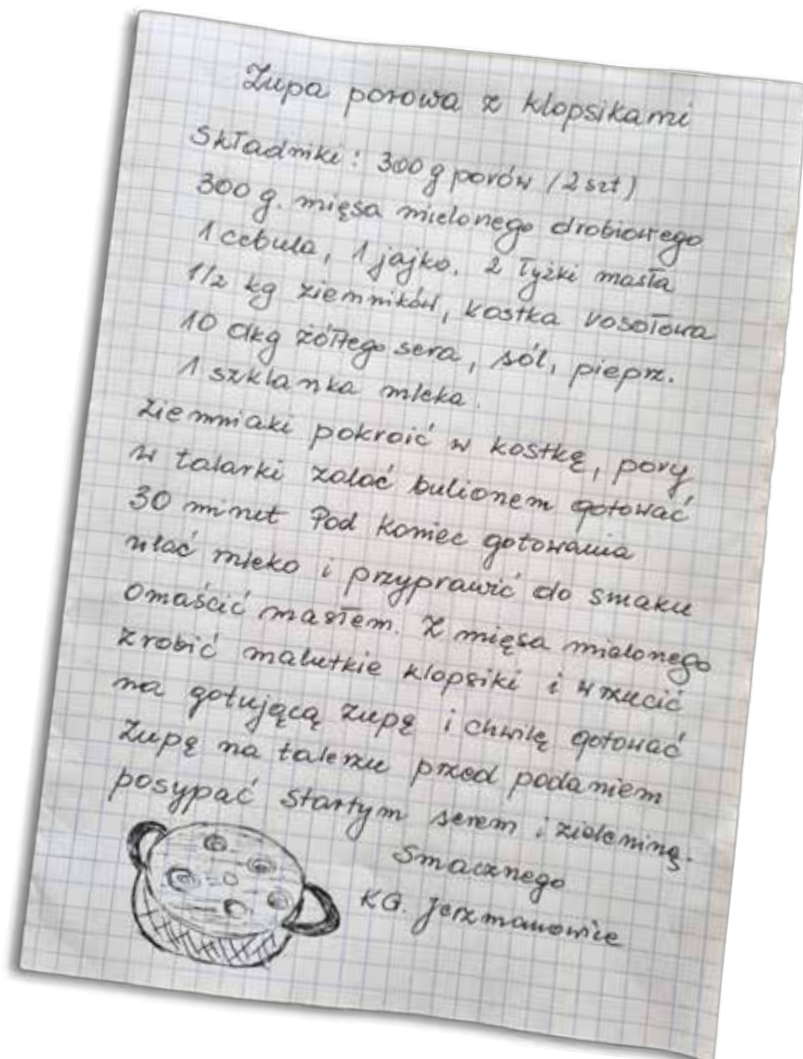 Zupa porowa z klopsikami
Składniki: 300 g porów (2 szt)
300 g. mięsa mielonego drobiowego
1 cebula, 1 jajko, 2 łyżki masła
1/2 kg ziemników, kostka rosołowa
10 dkg żółtego sera, sól, pieprz.
1 szklanka mleka.
Ziemniaki pokroić w kostkę, pory
w talarki zalać bulionem gotować
30 minut Pod koniec gotowania
wlać mleko i przyprawić do smaku
Omaścić masłem. Z mięsa mielonego
zrobić malutkie klopsiki i wrzucić
na gotującą zupę i chwilę gotować
Zupę na talerzu przed podaniem
posypać startym serem i zieleniną.
Smacznego
KG. Jerzmanowice